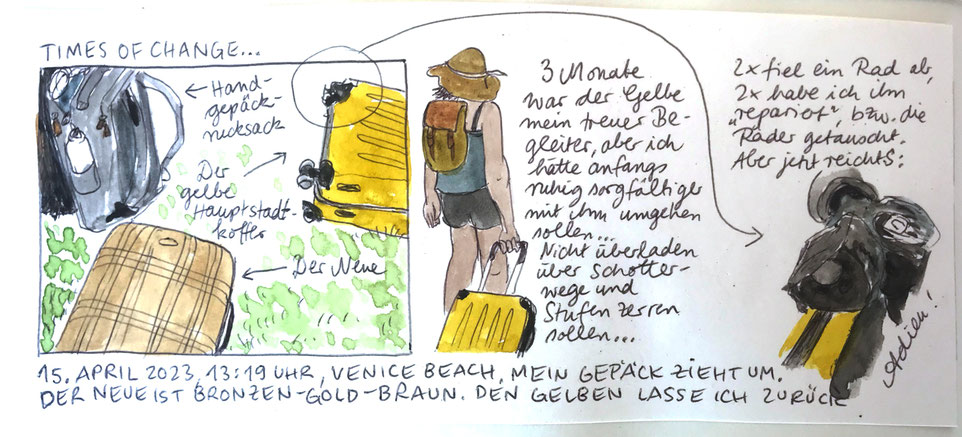 TIMES OF CHANGE...
← Hand-
gepäck-
rucksack
Der
gelbe
Hauptstadt-
koffer
← Der Neue
3 Monate
war der Gelbe
mein treuer Be-
gleiter, aber ich
hätte anfangs
ruhig sorgfältiger
mit ihm umgehen
sollen...
Nicht überladen
über Schotter-
wege und
Stufen zerren
sollen...
2x fiel ein Rad ab,
2x habe ich ihn
"repariert", bzw. die
Räder getauscht.
Aber jetzt reichts:
Adieu!
15. APRIL 2023, 13:19 UHR, VENICE BEACH, MEIN GEPÄCK ZIEHT UM.
DER NEUE IST BRONZEN-GOLD-BRAUN. DEN GELBEN LASSE ICH ZURÜCK